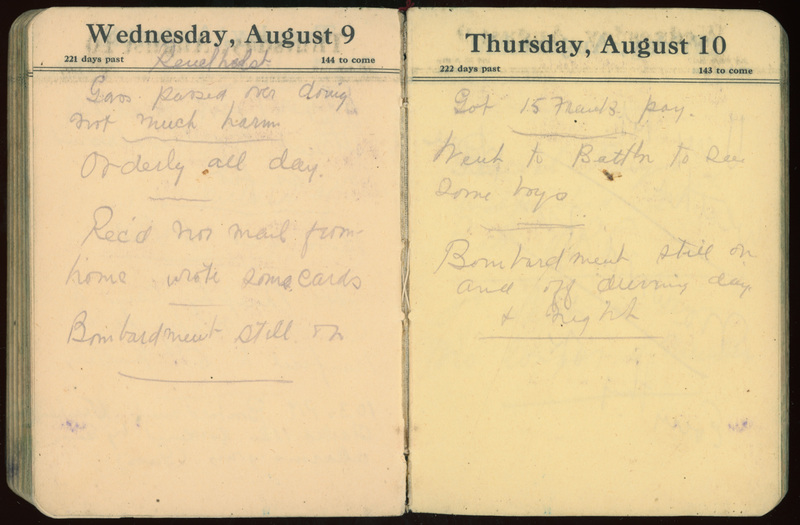 Wednesday, August 9
221 days past
144 to come
Gass passed over doing
not much harm
Orderly all day.
Rec'd nor mail from
home wrote some cards
Bombardment still on
Thursday, August 10
222 days past
143 to come
Got 15 Franks pay.
Went to Battln to see
some boys
Bombardment still on
and off durring day
& night